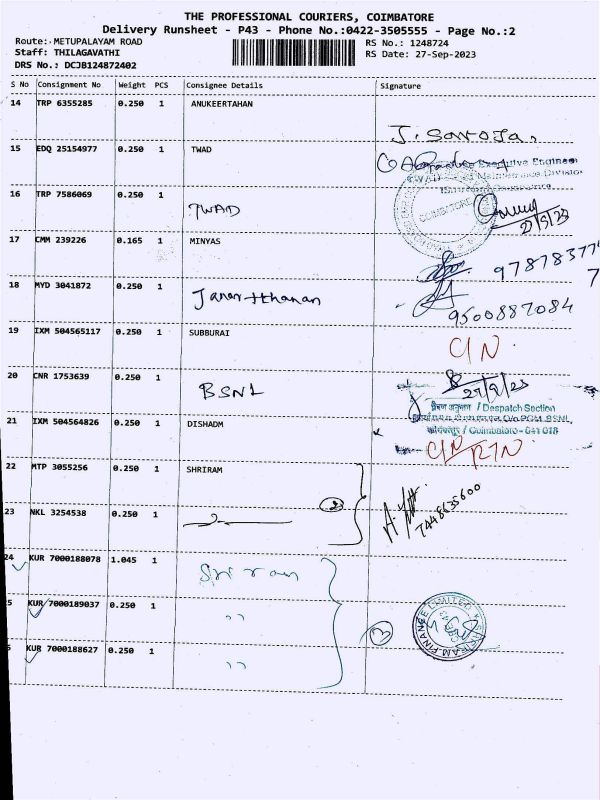 THE PROFESSIONAL COURIERS, COIMBATORE
Delivery Runsheet - P43 - Phone No.:0422-3505555 - Page No.:2
Route: METUPALAYAM ROAD RS No.: 1248724
Staff: THILAGAVATHI RS Date: 27-Sep-2023
DRS No.: DCJB124872402
S No Consignment No Weight PCS Consignee Details Signature
14 TRP 6355285 0.250 1 ANUKEERTAHAN
J. Saroja.
15 EDQ 25154977 0.250 1 TWAD
Executive Engineer
TWAD Maintenance Division
16 TRP 7586069 0.250 1
TWAD
COIMBATORE
27/9/23
17 CMM 239226 0.165 1 MINYAS
18 MYD 3041872 0.250 1 Janarthanan
9500887084
19 IXM 504565117 0.250 1 SUBBURAI
C/N
20 CNR 1753639 0.250 1 BSNL
27/9/23
प्रेषण अनुभाग / Despatch Section
O/o PGM, BSNL,
कोयंबत्तूर / Coimbatore - 641 018
21 IXM 504564826 0.250 1 DISHADM
C/N RTN
22 MTP 3055256 0.250 1 SHRIRAM
23 NKL 3254538 0.250 1 2
7448635600
24 KUR 7000188078 1.045 1 Sri ram
5 KUR 7000189037 0.250 1 ,,
3
SHRIRAM FINANCE LIMITED
KUR 7000188627 0.250 1 ,,